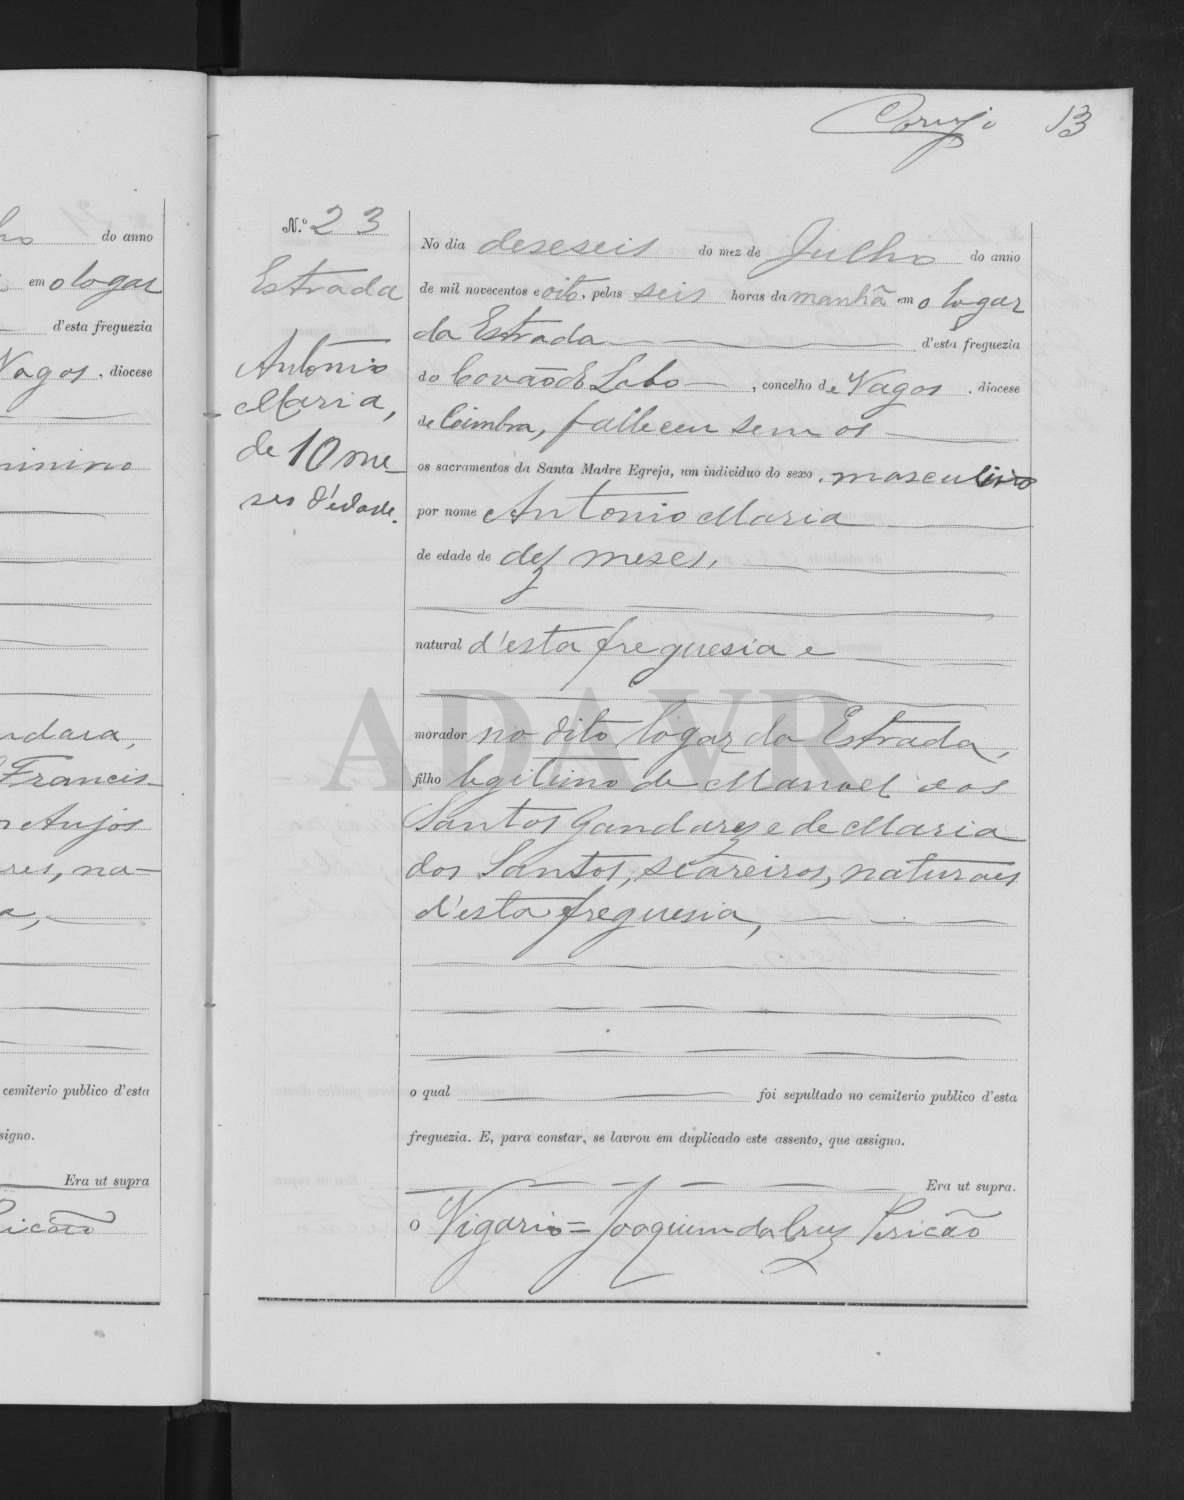 Coruj
13
ho do anno
em o logar
d'esta freguezia
Vagos, diocese
minino
ndara,
Francis-
Anjos
res, na-
a,
cemiterio publico d'esta
signo.
Era ut supra
ricão
N.º 23
Estrada
Antonio
Maria,
de 10 me-
ses d'edade.
No dia deseseis do mez de Julho do anno
de mil novecentos e oito, pelas seis horas da manhã em o logar
da Estrada d'esta freguezia
do Covão do Lobo, concelho de Vagos, diocese
de Coimbra, falleceu sem os
os sacramentos da Santa Madre Egreja, um individuo do sexo masculino
por nome Antonio Maria
de edade de dez meses,
natural d'esta freguesia e
morador no dito logar da Estrada,
filho legitimo de Manoel dos
Santos Gandarez e de Maria
dos Santos, seareiros, naturaes
d'esta freguesia,
ADAVR
o qual foi sepultado no cemiterio publico d'esta
freguezia. E, para constar, se lavrou em duplicado este assento, que assigno.
Era ut supra.
O Vigario = Joaquim da Cruz Pericão